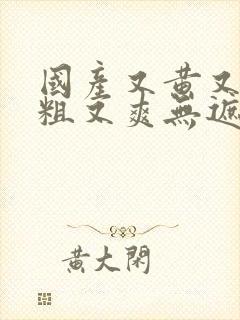 國產又黃又
粗又爽無遮
黃大閑